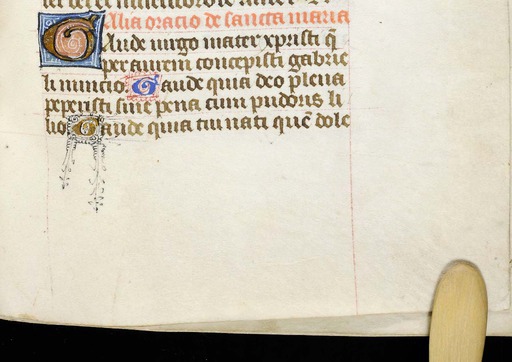 Alia oracio de sancta maria
Gaude uirgo mater xpristi q̃
per aurem concepisti gabrie
li nuncio Gaude quia deo plena
peperisti sine pena cum pudoris li
lio Gaude quia tui nati quẽ dole